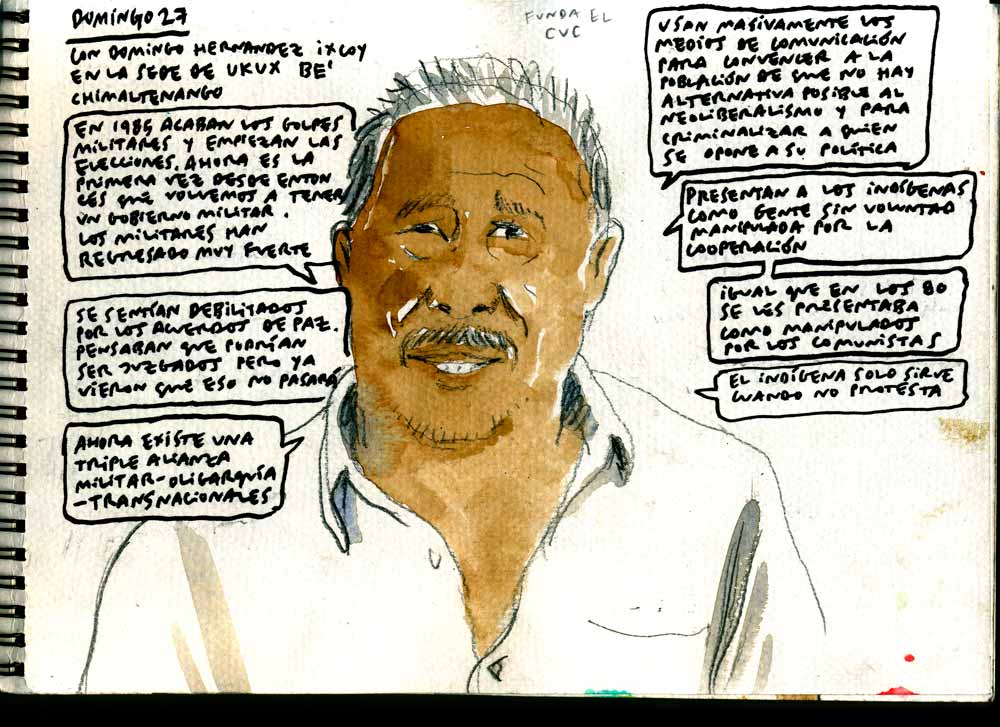 DOMINGO 27
CON DOMINGO HERNANDEZ IXCOY
EN LA SEDE DE UKUX BE'
CHIMALTENANGO
FUNDA EL
CVC
EN 1985 ACABAN LOS GOLPES
MILITARES Y EMPIEZAN LAS
ELECCIONES. AHORA ES LA
PRIMERA VEZ DESDE ENTON
CES QUE VOLVEMOS A TENER
UN GOBIERNO MILITAR.
LOS MILITARES HAN
REGRESADO MUY FUERTE
SE SENTÍAN DEBILITADOS
POR LOS ACUERDOS DE PAZ.
PENSABAN QUE PODRÍAN
SER JUZGADOS PERO YA
VIERON QUE ESO NO PASARÁ
AHORA EXISTE UNA
TRIPLE ALIANZA
MILITAR-OLIGARQUÍA
-TRANSNACIONALES
USAN MASIVAMENTE LOS
MEDIOS DE COMUNICACIÓN
PARA CONVENCER A LA
POBLACIÓN DE QUE NO HAY
ALTERNATIVA POSIBLE AL
NEOLIBERALISMO Y PARA
CRIMINALIZAR A QUIEN
SE OPONE A SU POLÍTICA
PRESENTAN A LOS INDÍGENAS
COMO GENTE SIN VOLUNTAD
MANIPULADA POR LA
COOPERACIÓN
IGUAL QUE EN LOS 80
SE LES PRESENTABA
COMO MANIPULADOS
POR LOS COMUNISTAS
EL INDÍGENA SOLO SIRVE
CUANDO NO PROTESTA